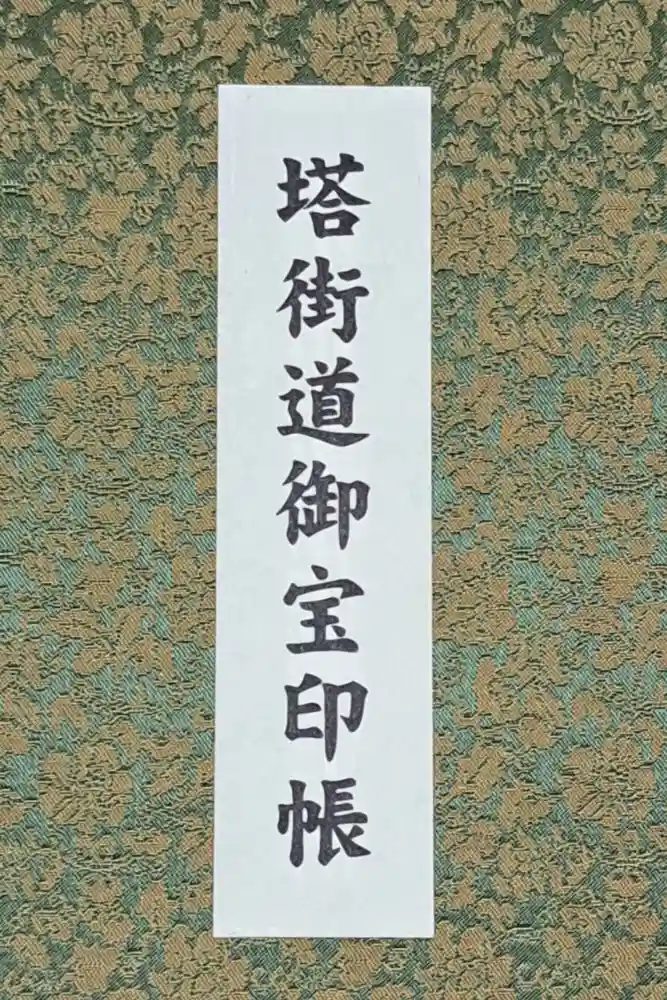 塔街道御宝印帳